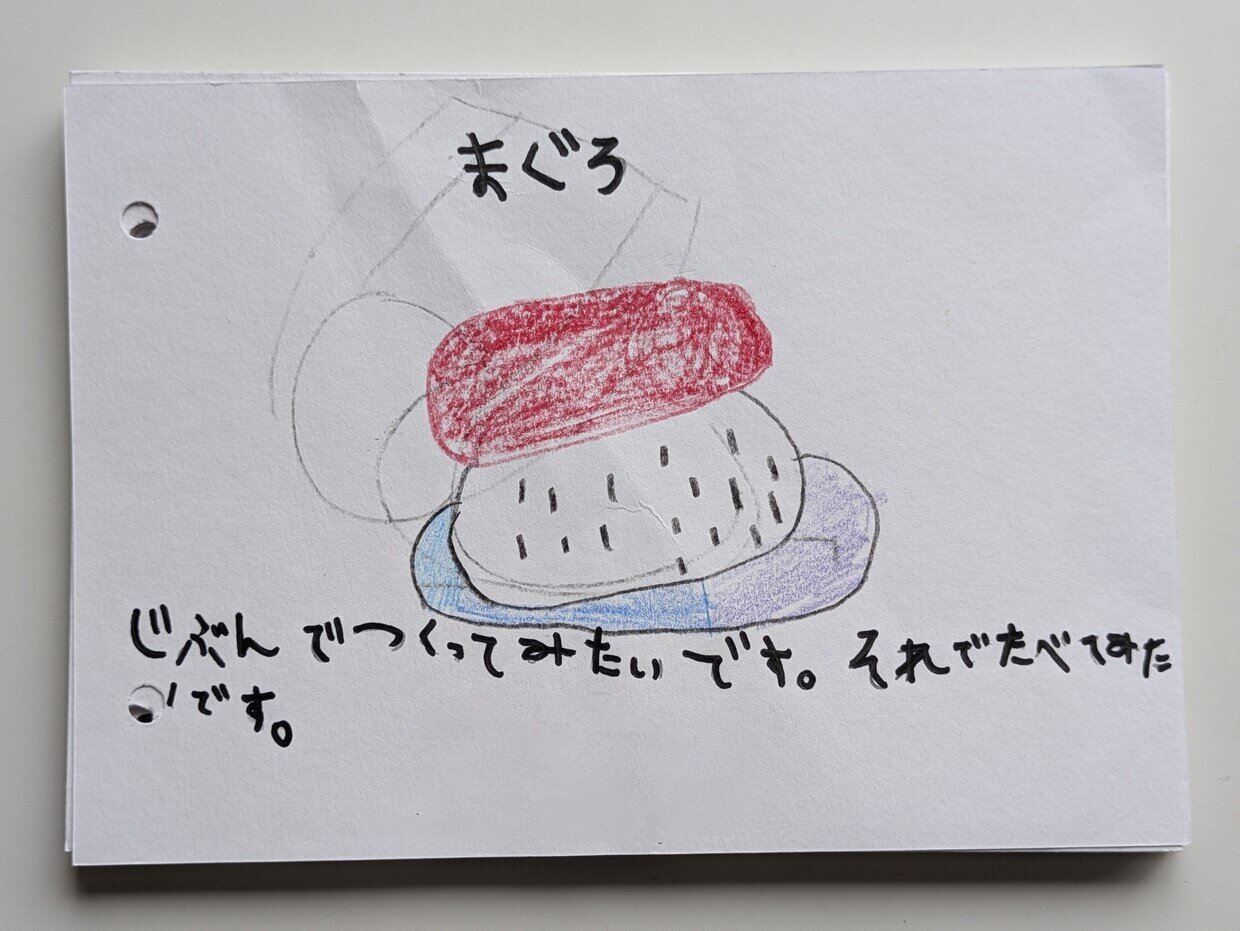 まぐろ
じぶんでつくってみたいです。それでたべてみた
いです。